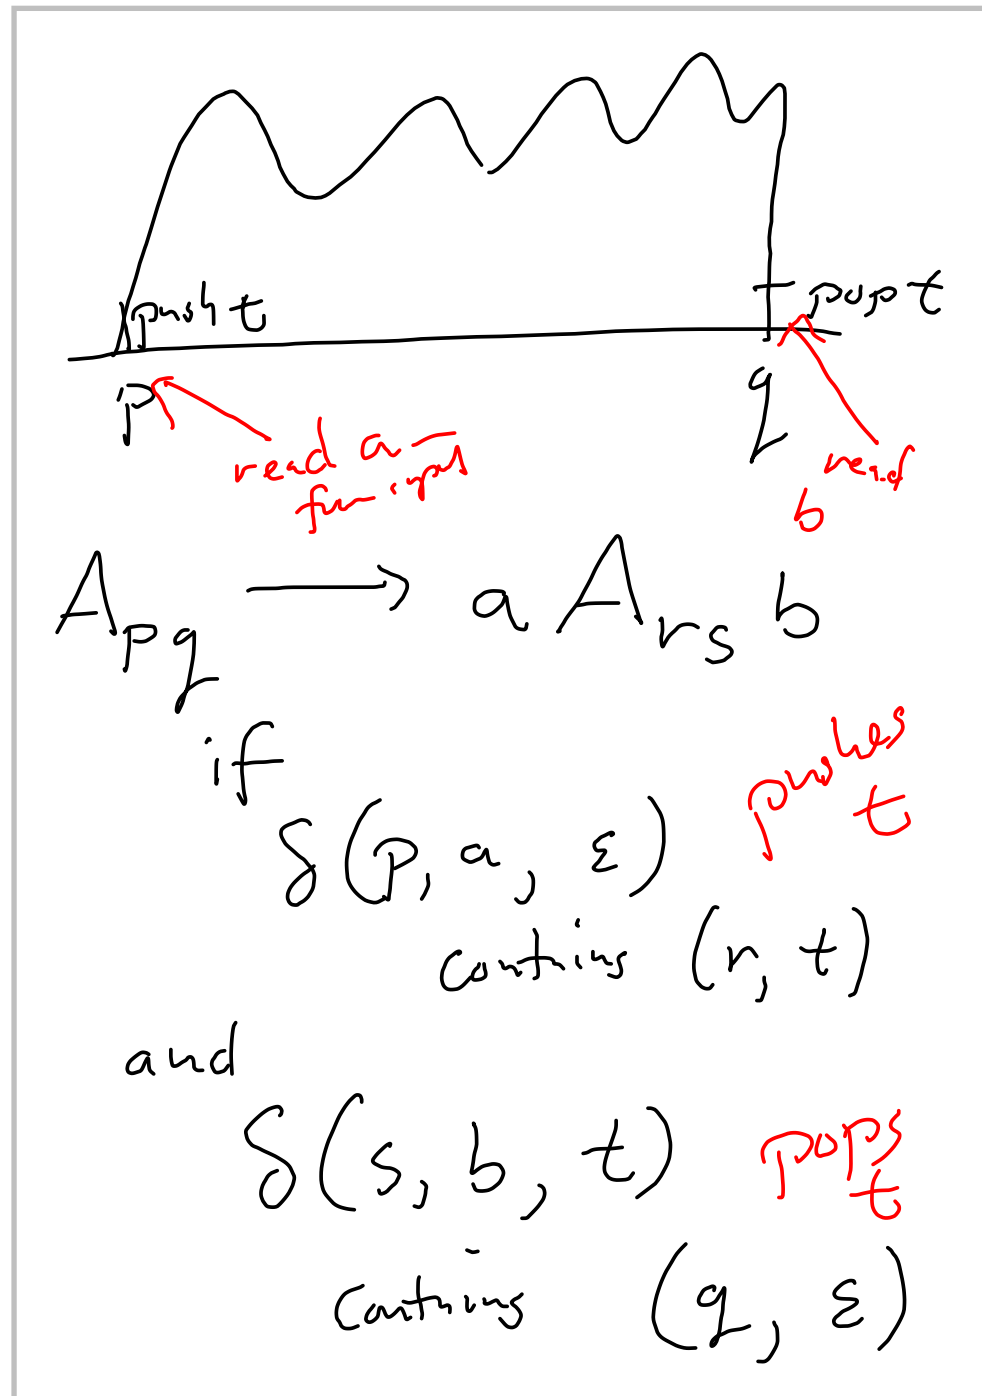 push t
pop t
p
q
read a
from input
read
b
A_pq → a A_rs b
if
δ(p, a, ε)
pushes
t
contains (r, t)
and
δ(s, b, t)
pops
t
contains (q, ε)